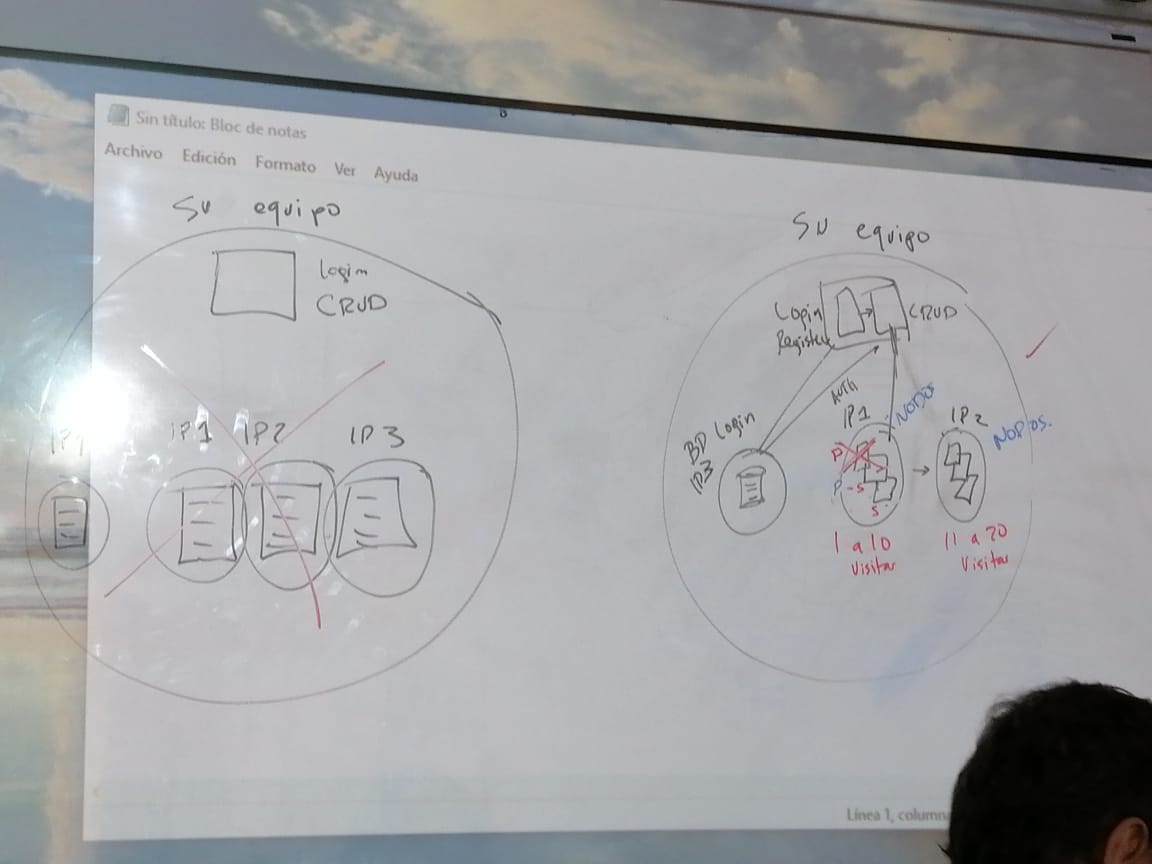 Sin título: Bloc de notas
Archivo Edición Formato Ver Ayuda
Su equipo
Login
CRUD
IP1 IP2 IP3
Su equipo
Login
Register
CRUD
AUTH
BD Login
IP3
IP1
NODOS
IP2
NODOS.
P
P-S
S
1 a 10
Visitar
11 a 20
Visitar
Línea 1, column